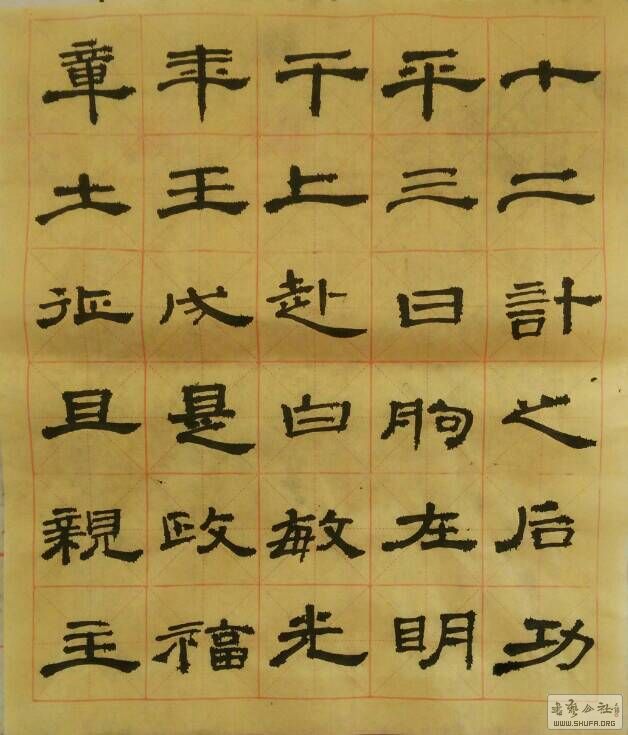 十二計之后功
平三日朐在明
干上赴白敏光
年王成是政福
章土征且親主
书艺公社
WWW.SHUFA.ORG